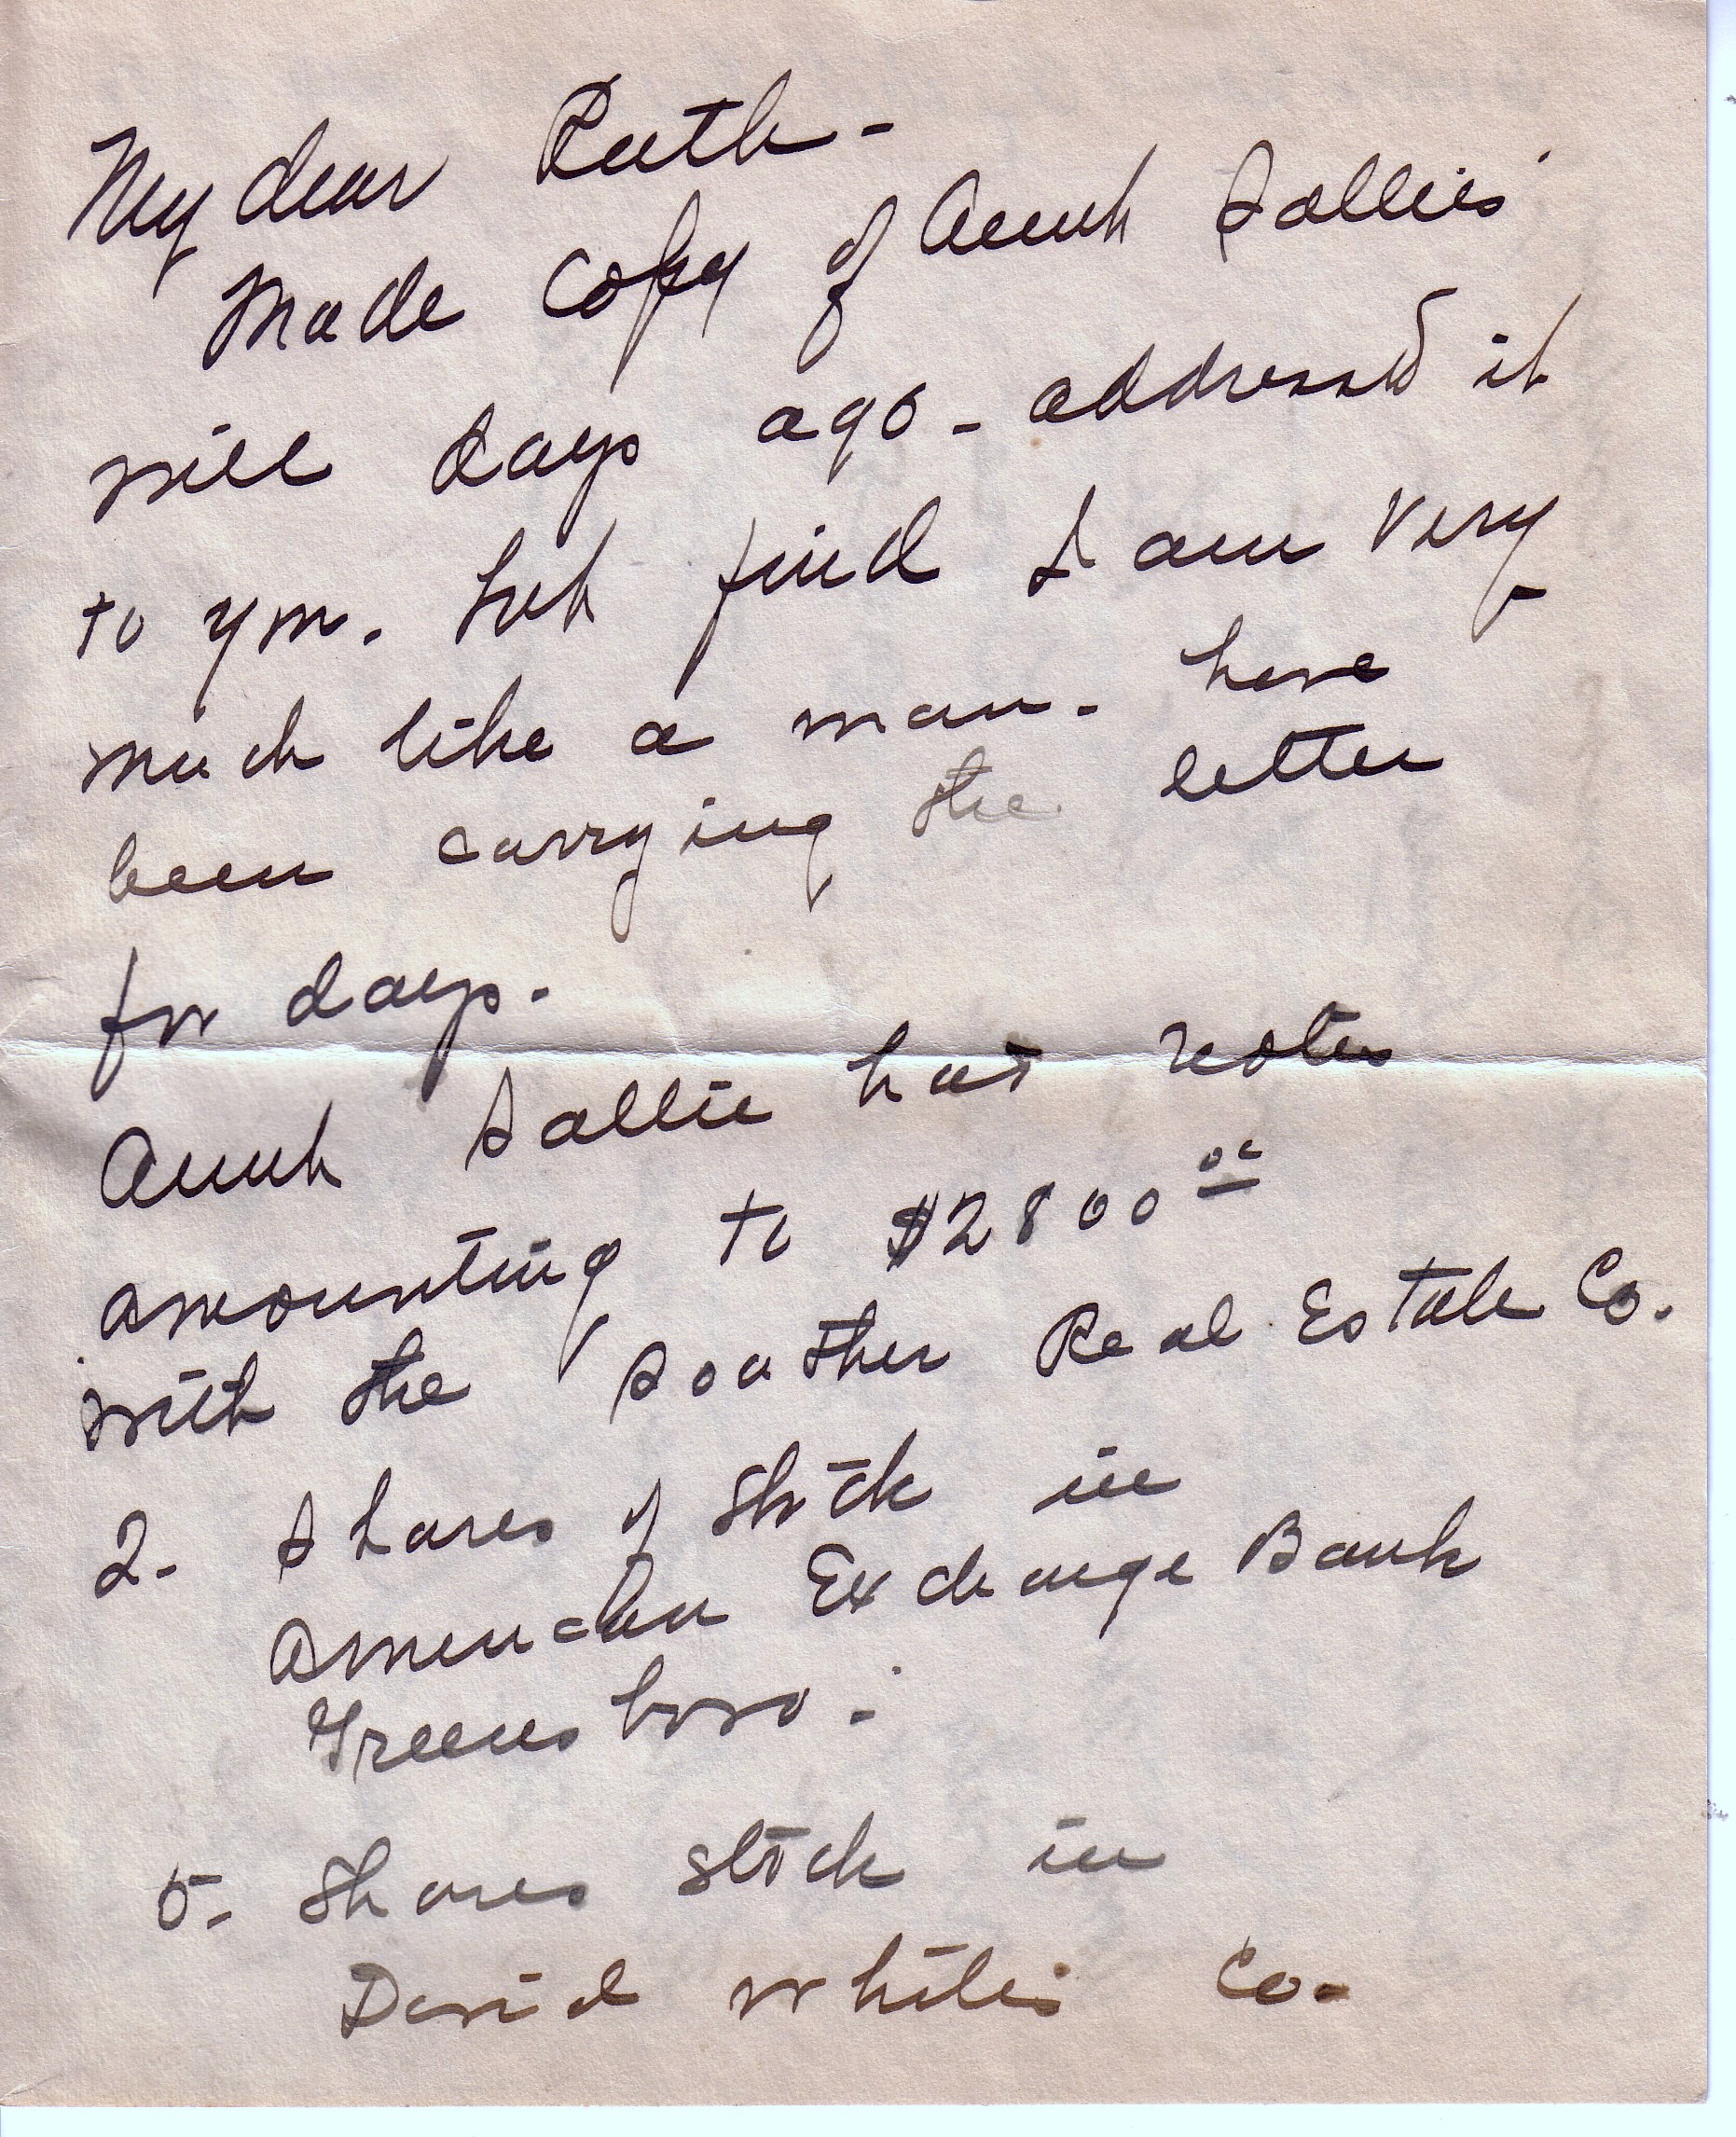 My dear Ruth -
Made copy of Aunt Sallie's
will days ago - addressed it
to you. but find I am very
much like a man - have
been carrying the letter
for days.
Aunt Sallie has notes
amounting to $2800.00
with the Souther Real Estate Co.
2 - Shares of Stock in
American Exchange Bank
Greensboro.
5 - Shares stock in
David White's Co.